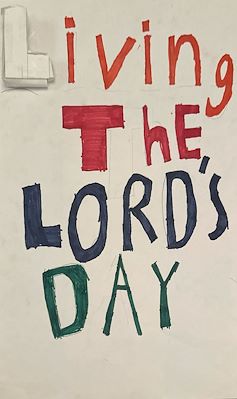 Living
The
LORD'S
DAY